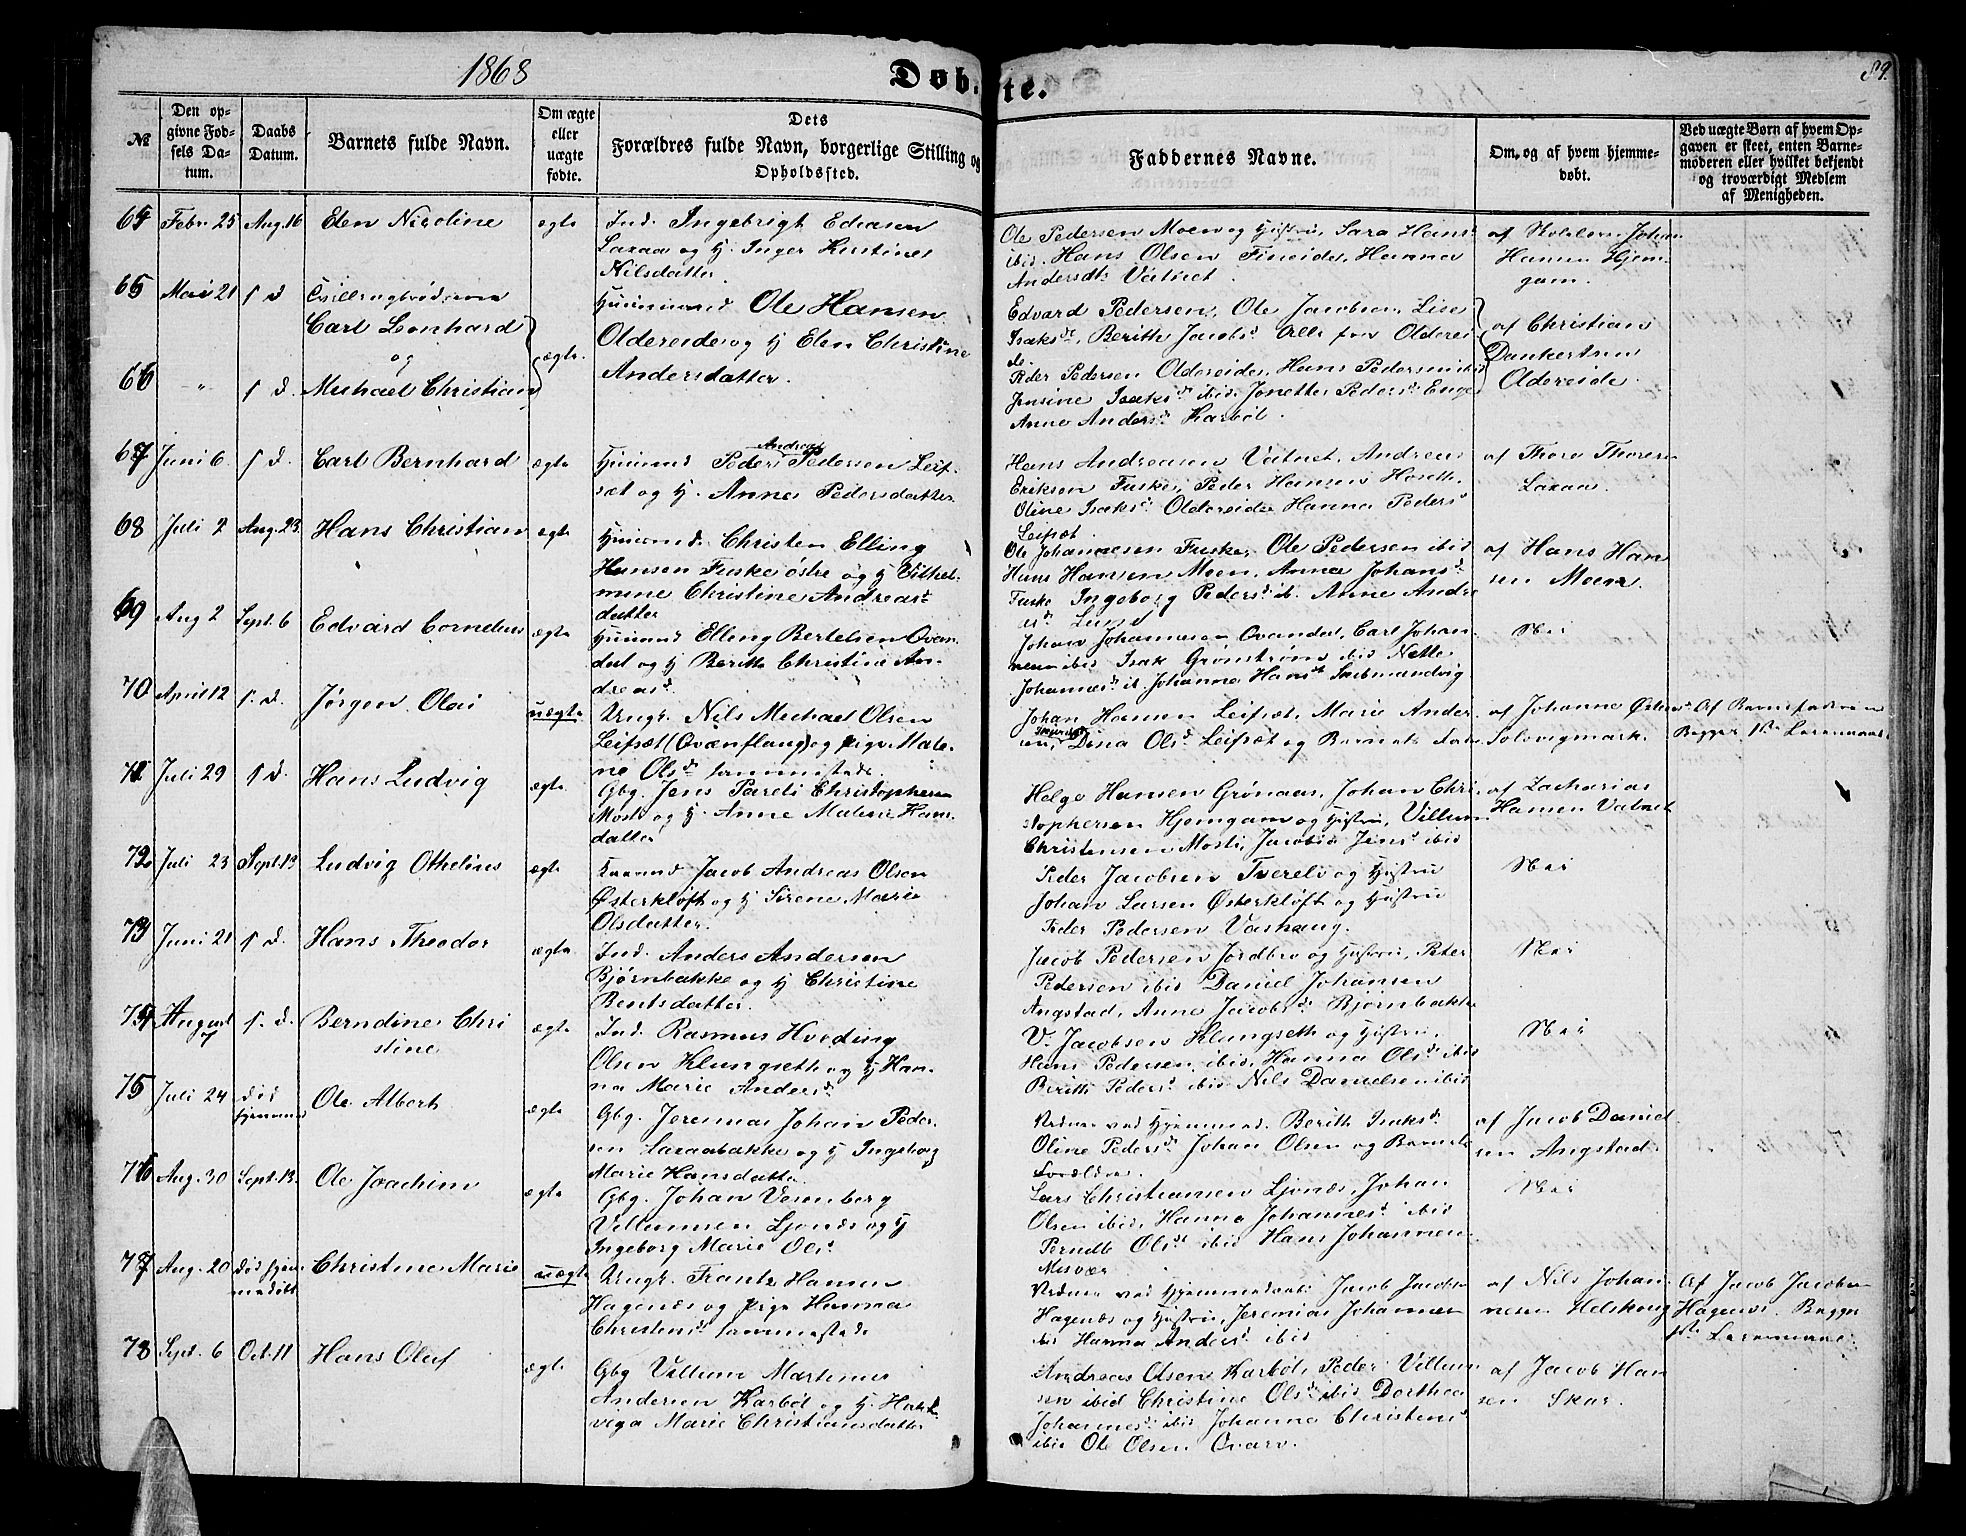 1868
Døbte.
89.
№
Den opgivne Fødsels Datum.
Daabs Datum.
Barnets fulde Navn.
Om ægte eller uægte fødte.
Dets Forældres fulde Navn, borgerlige Stilling og Opholdssted.
Faddernes Navne.
Om, og af hvem hjemmedøbt.
Ved uægte Børn af hvem Opgaven er skeet, enten Barnemoderen eller hvilket bekjendt og troværdigt Medlem af Menigheden.
64 Febr. 25 Aug. 16 Elen Nicoline ægte
Ind. Ingebrigt Edvasen
Laxaa og H. Inger Kirstine
Nilsdatter
Ole Pedersen Moen og Hustru, Sara Hansd.
ibid. Hans Olsen Fineide, Hanna
Andersdt. Vatnet.
af Skolelær. Johan
Hansen Hjem-
gam.
65 Mai 21 s. d. Tvillingbrødrene
Carl Leonhard
og
66 " s. d. Michael Christian ægte.
Huusmand Ole Hansen
Oldereide og H. Elen Christine
Andersdatter.
Edvard Pedersen, Ole Jacobsen, Lise
Isaksd., Berith Jacobsd. Alle fra Olderei
de.
Peder Pedersen Oldereide, Hans Pedersen ibid
Jensine Isaksd. ibid. Jonette Pedersd. Enge
Anne Andersd. Karbøl.
af Christian
Dankertsen
Oldereide.
67 Juni 6 s. d. Carl Bernhard ægte
Huusmd Peder Andreas Pedersen Leif-
set og H. Anne Pedersdatter
Hans Andreasen Vatnet, Andreas
Eriksen Fuske, Peder Hansen
Oline Isaksd. Oldereide, Hanna Pedersd.
Leifset.
af Thore Thoresen
Laxaa.
68 Juli 2 Aug. 23 Hans Christian ægte
Huusmd. Christen Elling
Hansen Fuske østre og H. Vilhel-
mine Christine Andreas-
datter
Ole Johannesen Fuske, Ole Pedersen ibid
Hans Hansen Moen, Anna Johansd.
Fuske Ingeborg Pedersd. ib. Anne Andre
asd. Lund
af Hans Han
sen Moen.
69 Aug 2 Sept. 6 Edvard Cornelius ægte
Huusmd Elling Bertelsen Ovan-
dal og H Berith Christine An-
dreasd.
Johan Johannesen Ovandal, Carl Johan-
nesen ibid Isak Grønstrøm ibid Nette
Johannesd. ib. Johanna Hansd.
Nei
70 April 12 s. d. Jørgen Olai uægte
Ungk. Nils Michael Olsen
Leifset (Ovænflaug) og pige Male-
ne Olsd. sammesteds.
Johan Hansen Leifset, Marie Ander
Dina Olsd. Leifset og Barnets Fader
af Johanne
Solvigmark.
Af Barnefaderen
Begges 1ste Leiermaal
71 Juli 29 s. d. Hans Ludvig ægte
Gbg. Jens Pareli Christophersen
Mosti og H. Anne Malene Hans-
datter
Helge Hansen Grønaas, Johan Chri-
stophersen Hjemgam og Hustru, Villum
Christensen Mosti, Jacobia Jensd. ibid
af Zacharias
Hansen Vatnet
72 Juli 23 Sept. 13 Ludvig Othelius ægte
Huusmd Jacob Andreas Olsen
Østerkløft og H Sirene Marie
Olsdatter.
Peder Jacobsen Tverelv og Hustru
Johan Larsen Østerkløft og Hustru
Peder Pedersen Vashaug.
Nei
73 Juni 21 s. d. Hans Theodor ægte
Ind. Anders Andersen
Bjørnbakke og H Christine
Bentsdatter
Jacob Pedersen Jordbro og Hustru, Peter
Pedersen ibid Daniel Johansen
Angstad, Anne Jacobsd. Bjørnbakke
Nei
74 August 7 s. d. Berndine Chri
stine ægte
Ind. Rasmus Hveding
Olsen Klungseth og H Han-
na Marie Andersd.
V. Jacobsen Klungseth og Hustru.
Hans Pedersen ibid, Hanna Olsd. ibid
Berith Pedersd. ibid Nils Danielsen ibid
Nei
75 Juli 24 død
hjemme Ole Albert ægte
Gbg. Jeremias Johan Peder-
sen Laxaabakke og H Ingeborg
Marie Hansdatter
Vidner ved Hjemmed. Berith Isaksd.
Oline Pedersd. Johan Olsen og Barnets
Forældre.
af Jacob Daniel
sen Angstad
76 Aug. 30 Sept. 13. Ole Joachim ægte
Gbg. Johan Vesenberg
Villumsen Ljønes og H
Ingeborg Marie Olsd.
Lars Christiansen Ljønes, Johan
Olsen ibid, Hanna Johannesd. ibid
Pernille Olsd. ibid Hans Johannen
Misvær
Nei
77 Aug. 20 død hjem-
medøbt Christine Marie uægte
Ungk. Frantz Hansen
Hagenæs og pige Hanna
Christensd. sammesteds
Vidner ved Hjemmedaab: Jacob Jacobsen
Hagenæs og Hustru, Jeremias Johannes
ibid Hanna Andersd. ibid
af Nils Johan-
nesen Helskoug
Af Jacob Jacobsen
Hagenæs. Begges
1ste Leiermaal.
78 Sept. 6 Oct. 11 Hans Oluf ægte
Gbg Villum Martinus
Andersen Karbøl og H. Hart-
viga Marie Christiansdatter
Andreas Olsen Karbøl, Peder Villum
sen ibid Christine Olsd. ibid Dorthea
Johannesd. ibid Johanna Christensd.
ibid Ole Olsen Qvarv.
af Jacob Han
sen Skar.